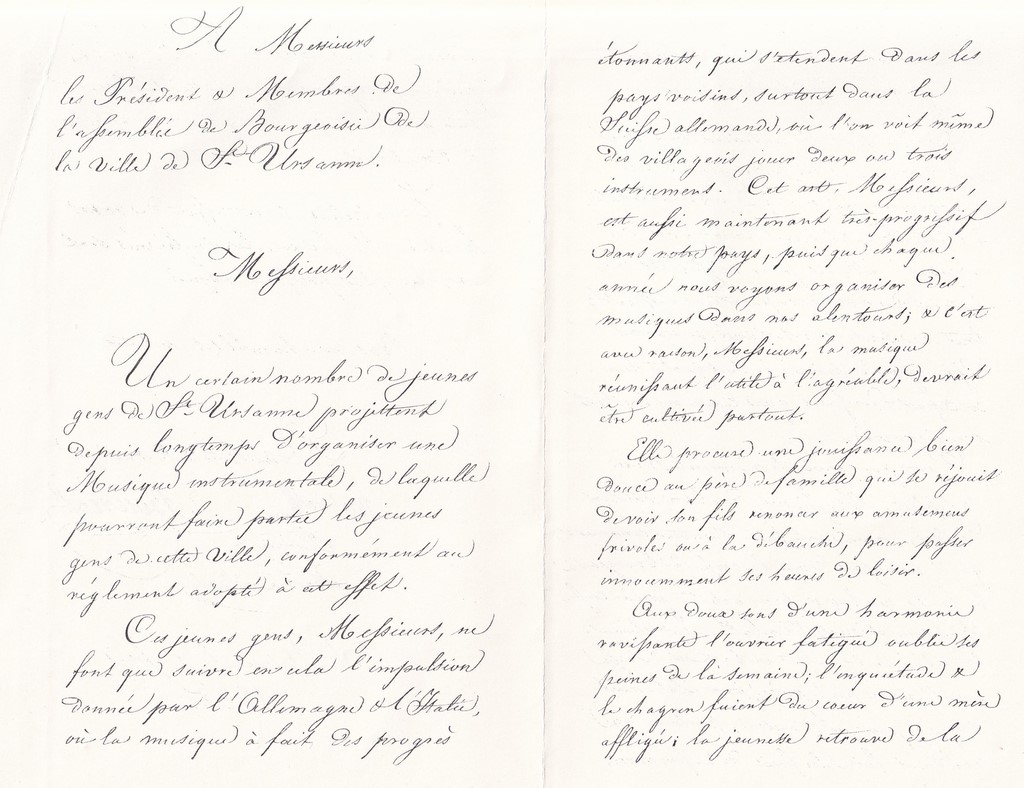 A Messieurs
les Président & Membres de
l'assemblée de Bourgeoisie de
la ville de St Ursanne.
Messieurs,
Un certain nombre de jeunes
gens de St-Ursanne projettent
depuis longtemps d'organiser une
Musique instrumentale, de laquelle
pourront faire partie les jeunes
gens de cette Ville, conformément au
réglement adopté à cet effet.
Ces jeunes gens, Messieurs, ne
font que suivre en cela l'impulsion
donnée par l'Allemagne & l'Italie,
où la musique à fait des progrès
étonnants, qui s'etendent dans les
pays voisins, surtout dans la
Suisse allemande, où l'on voit même
des villageois jouer deux ou trois
instrumens. Cet art, Messieurs,
est aussi maintenant très-progressif
dans notre pays, puisque chaque
année nous voyons organiser des
musiques dans nos alentours; & c'est
avec raison, Messieurs, la musique
réunissant l'utile à l'agréable, devrait
être cultivée partout.
Elle procure une jouissance bien
douce au père de famille qui se réjouit
de voir son fils renoncer aux amusemens
frivoles ou à la débauche, pour passer
innocemment ses heures de loisir.
Aux doux sons d'une harmonie
ravissante l'ouvrier fatigué oublie ses
peines de la semaine; l'inquiétude &
le chagrin fuient du coeur d'une mère
affligée; la jeunesse retrouve de la